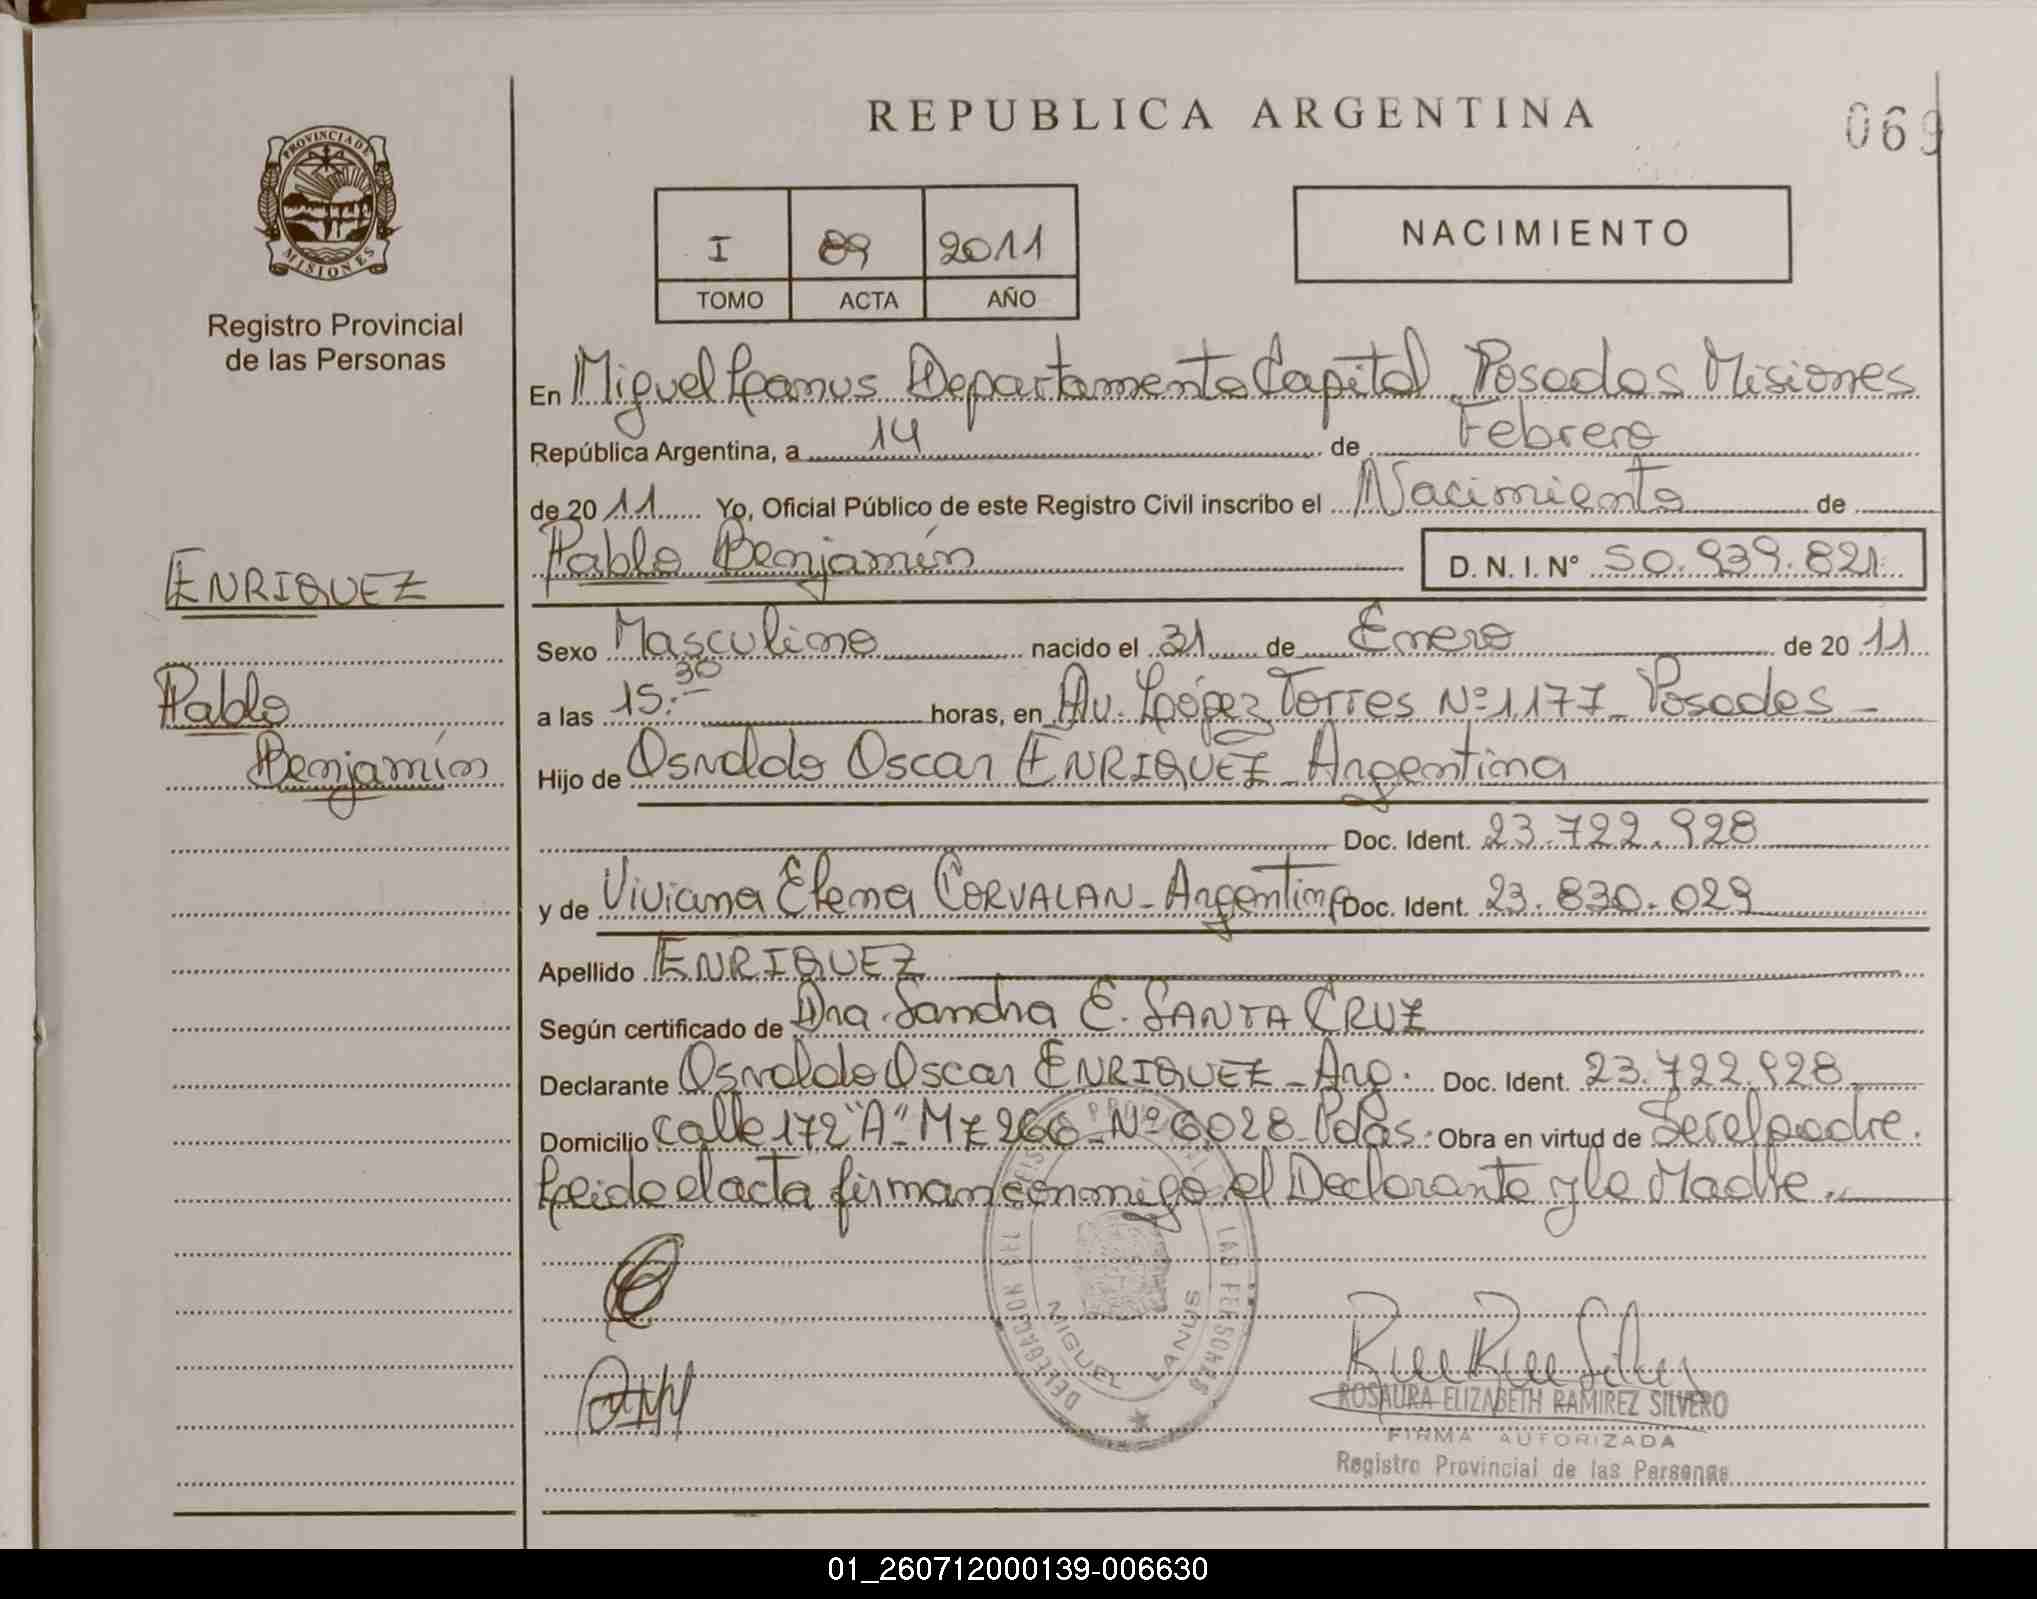 REPUBLICA ARGENTINA
069
PROVINCIA DE
MISIONES
Registro Provincial
de las Personas
I 89 2011
TOMO ACTA AÑO
NACIMIENTO
En Miguel Lanus Departamento Capital Posadas Misiones
República Argentina, a 14 de Febrero
de 20 11 Yo, Oficial Público de este Registro Civil inscribo el Nacimiento de
Pablo Benjamín D. N. I. N° 50.939.821
ENRIQUEZ
Pablo
Benjamín
Sexo Masculino nacido el 31 de Enero de 20 11
a las 15.30 horas, en Av. López Torres Nº 1177 - Posadas -
Hijo de Osvaldo Oscar ENRIQUEZ - Argentina
Doc. Ident. 23.722.928
y de Viviana Elena CORVALAN - Argentina Doc. Ident. 23.830.029
Apellido ENRIQUEZ
Según certificado de Dra. Sandra E. SANTA CRUZ
Declarante Osvaldo Oscar ENRIQUEZ - Arg. Doc. Ident. 23.722.928
Domicilio Calle 172 "A" - Mz 266 - Nº 6028 - Pdas. Obra en virtud de Ser el padre.
Leido el acta firman conmigo el Declarante y la Madre.
DELEGACION DEL REGISTRO PROVINCIAL DE LAS PERSONAS
MIGUEL LANUS
ROSAURA ELIZABETH RAMIREZ SILVERO
FIRMA AUTORIZADA
Registro Provincial de las Personas
01_260712000139-006630